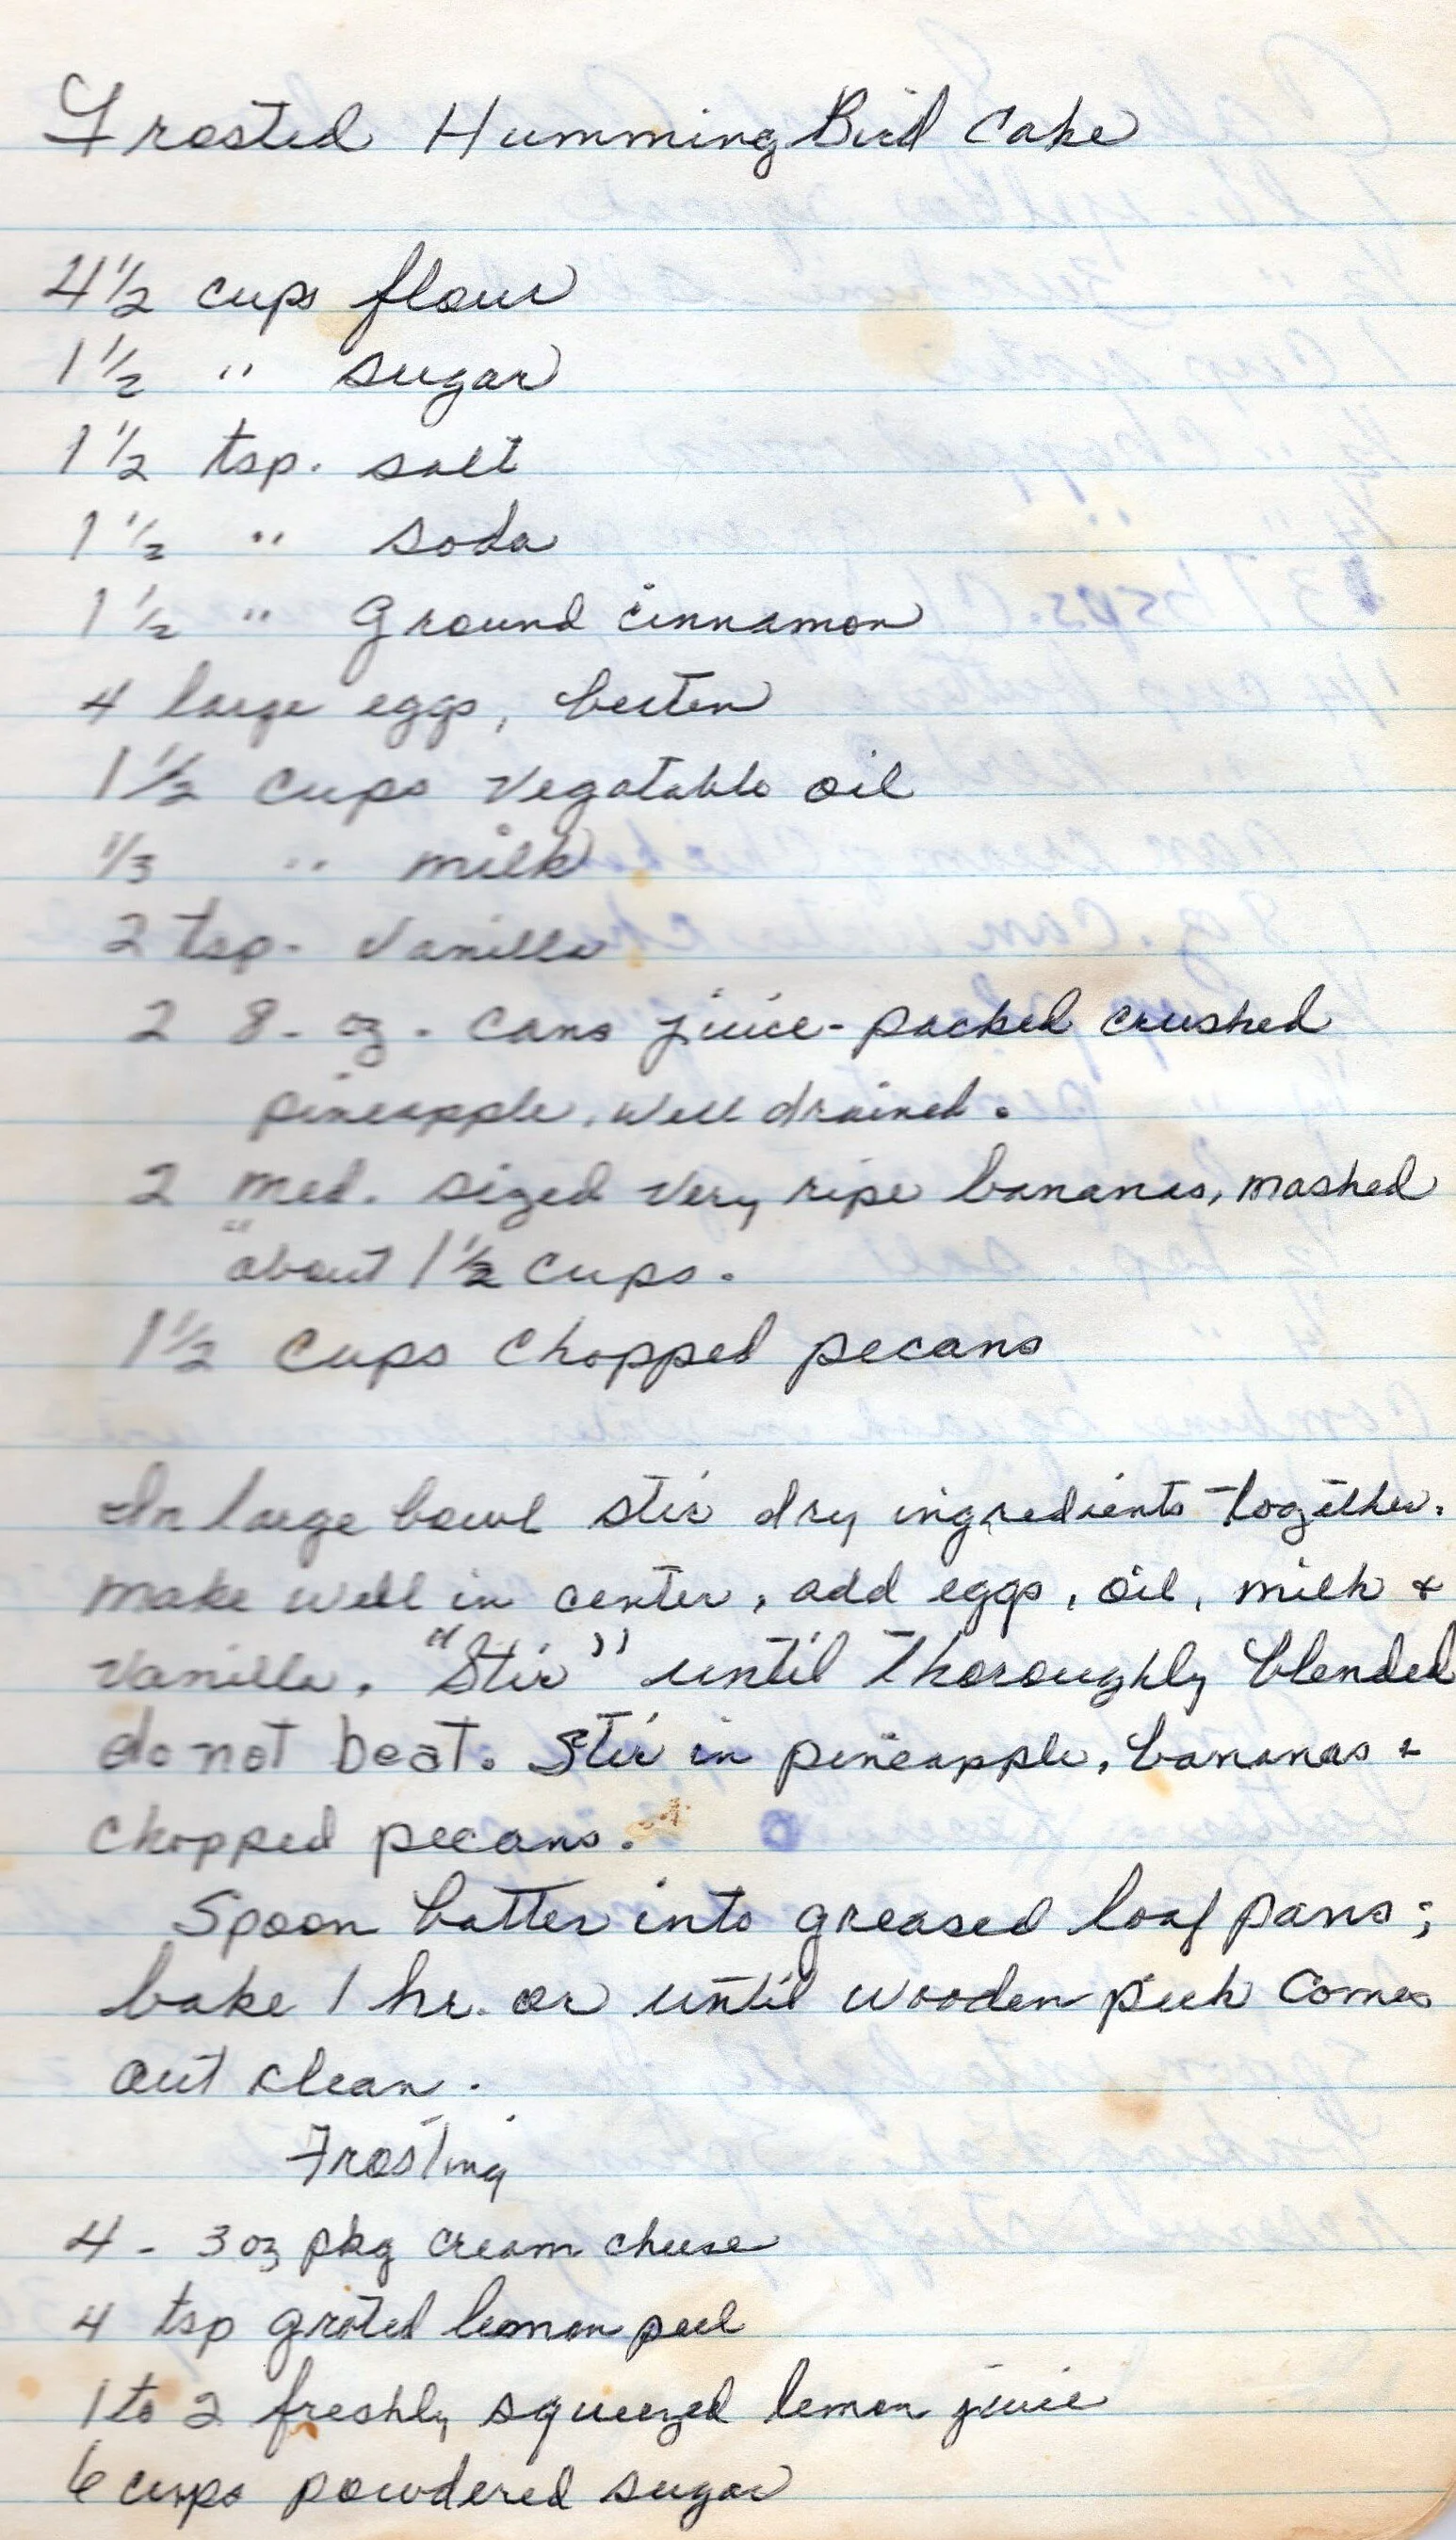 Frosted Humming Bird Cake
4 1/2 cups flour
1 1/2 " sugar
1 1/2 tsp. salt
1 1/2 " soda
1 1/2 " Ground cinnamon
4 large eggs, beaten
1 1/2 cups vegatable oil
1/3 " milk
2 tsp. Vanilla
2 8-oz. cans juice-packed crushed
pineapple, well drained.
2 med. sized very ripe bananas, mashed
"about 1 1/2 cups.
1 1/2 cups chopped pecans
In large bowl stir dry ingredients together.
make well in center, add eggs, oil, milk &
Vanilla. "Stir" until thoroughly blended
do not beat. Stir in pineapple, bananas &
chopped pecans.
Spoon batter into greased loaf pans;
bake 1 hr. or until wooden pick comes
out clean.
Frosting
4 - 3 oz pkg cream cheese
4 tsp grated lemon peel
1 to 2 freshly squeezed lemon juice
6 cups powdered sugar